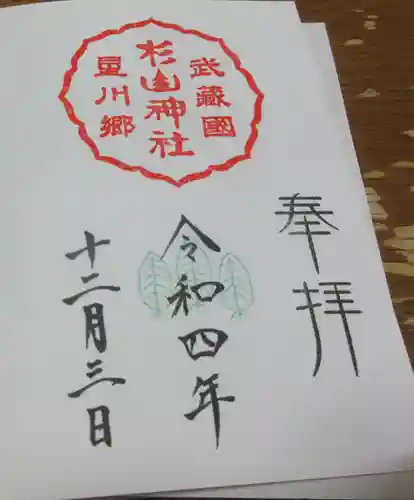 武藏國
杉山神社
星川郷
奉拝
令和四年
十二月三日